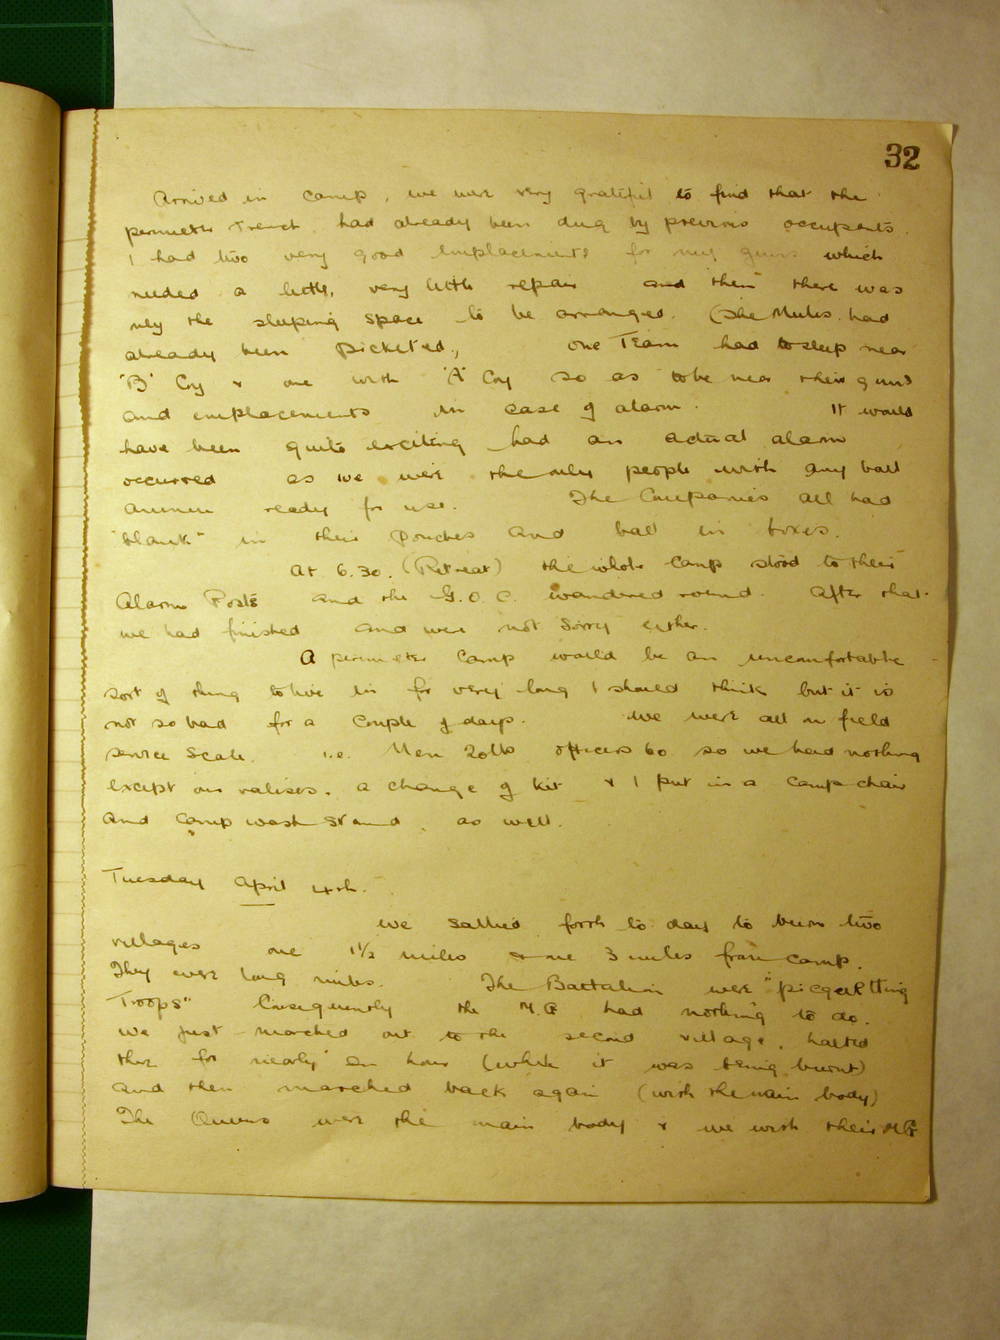 32
Arrived in camp, we were very grateful to find that the
perimeter trench had already been dug by previous occupants.
I had two very good emplacements for my guns which
needed a little, very little repair and then there was
only the sleeping space to be arranged. (The Mules had
already been picketed., one Team had to sleep near
'B' Coy & one with 'A' Coy so as to be near their guns
and emplacements in case of alarm. It would
have been quite exciting had an actual alarm
occurred as we were the only people with any ball
ammn ready for use. The Companies all had
"blank" in their pouches and ball in boxes.
At 6.30. (Retreat) the whole camp stood to their
Alarm Posts and the G.O.C. wandered round. After that
we had finished and were not sorry either.
A perimeter camp would be an uncomfortable
sort of thing to live in for very long I should think but it is
not so bad for a couple of days. We were all on field
service scale. i.e. Men 20lbs officers 60 so we had nothing
except our valises. a change of kit & I put in a camp chair
and camp wash stand as well.
Tuesday April 4th.
We sallied forth to day to burn two
villages one 1½ miles & one 3 miles from camp.
They were long miles. The Battalion were "picquetting
Troops" Consequently the M.G. had nothing to do.
We just marched out to the second village, halted
there for nearly an hour (while it was being burnt)
and then marched back again (with the main body)
The Queens were the main body & we with their MG